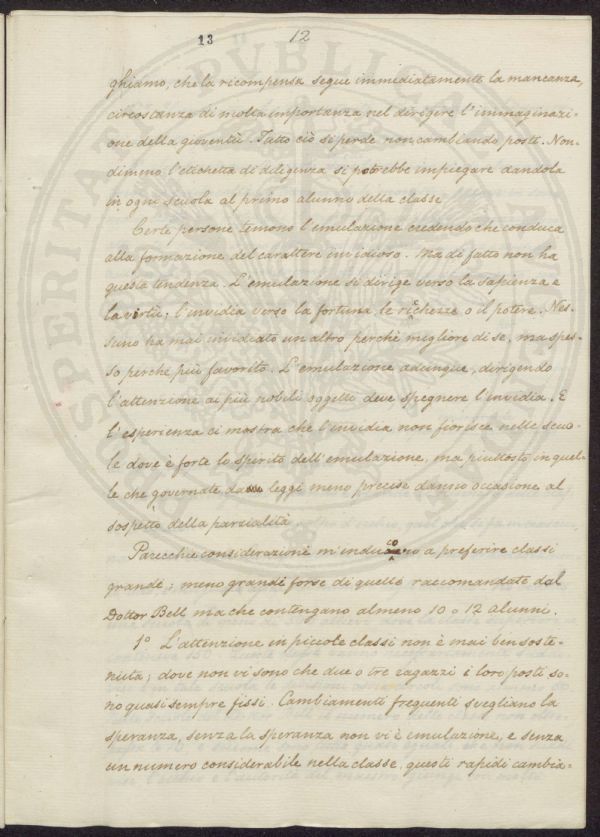 13 12
ghiamo, che la ricompensa segue immediatamente la mancanza,
circostanza di molta importanza nel dirigere l'immaginazi-
one della gioventù. Tutto ciò si perde non cambiando posti. Non-
dimeno l'etichetta di diligenza si potrebbe impiegare dandola
in ogni scuola al primo alunno della classe
Certe persone temono l'emulazione credendo che conduca
alla formazione del carattere invidioso. Ma di fatto non ha
questa tendenza. L'emulazione si dirige verso la sapienza e
la virtù; l'invidia verso la fortuna, le richezze o il potere. Nes-
suno ha mai invidiato un altro perchè migliore di se, ma spes-
so perchè più favorito. L'emulazione adunque, dirigendo
l'attenzione ai più nobili oggetti deve spegnere l'invidia. E
l'esperienza ci mostra che l'invidia non fiorisce nelle scuo-
le dove è forte lo spirito dell'emulazione, ma piuttosto in quel-
le che governate da leggi meno precise danno occasione al
sospetto della parzialità
Parecchie considerazione m'inducono a preferire classi
grande; meno grandi forse di quelle raccomandate dal
Dottor Bell ma che contengano almeno 10 o 12 alunni.
1º L'attenzione in piccole classi non è mai ben soste-
nuta; dove non vi sono che due o tre ragazzi i loro posti so-
no quasi sempre fissi. Cambiamenti frequenti svegliano la
speranza, senza la speranza non vi è emulazione, e senza
un numero considerabile nella classe, questi rapidi cambia-